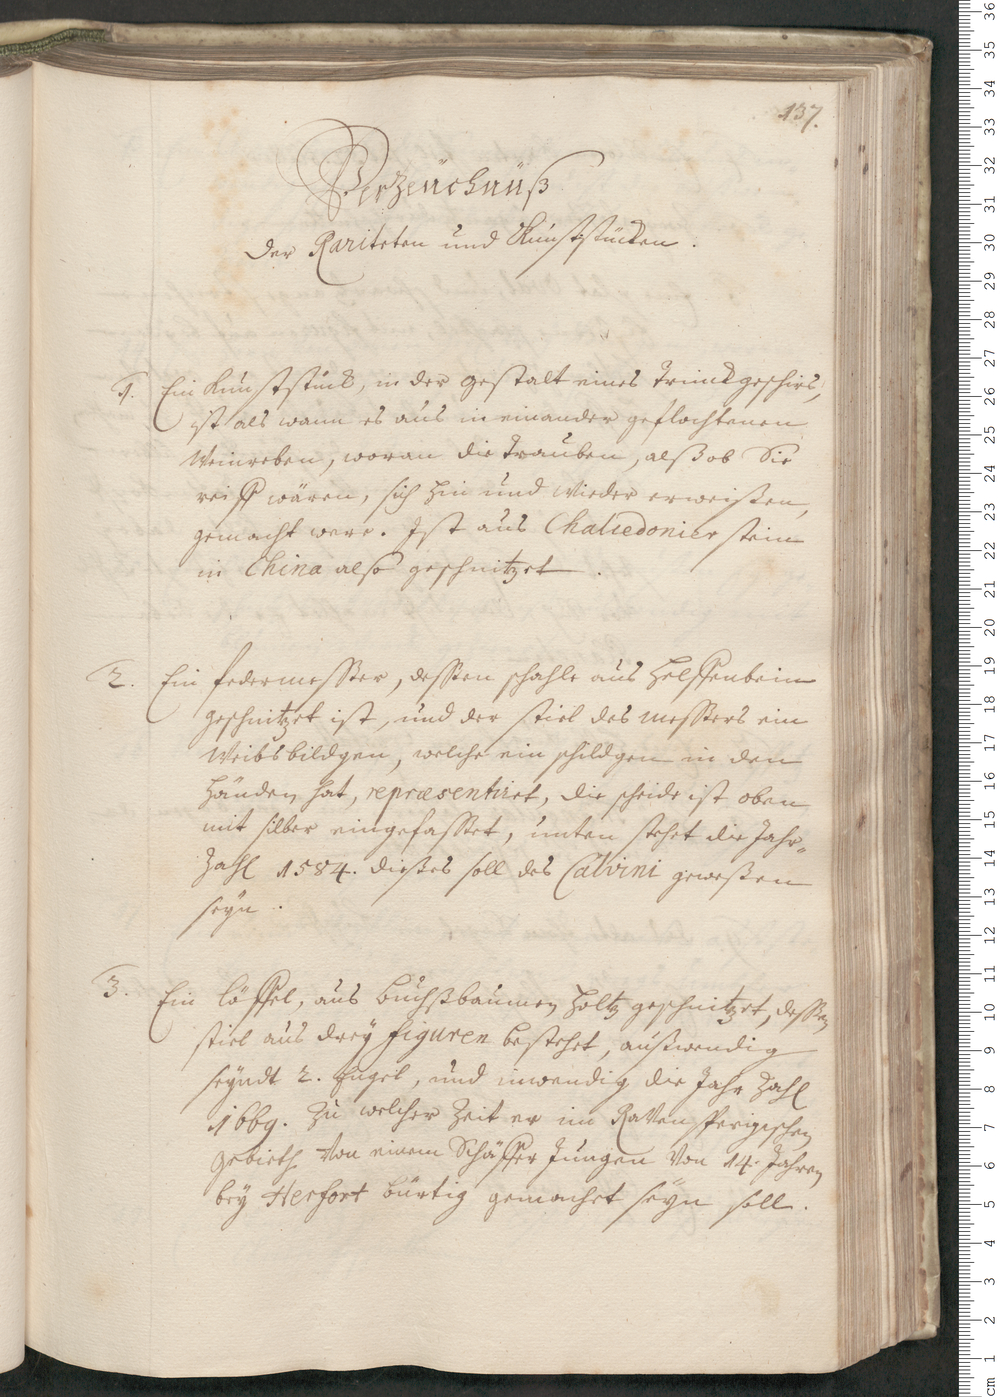 137.
Verzeüchnüß
Der Rariteten und Kunststücken.
1. Ein Kunststück, in der gestalt eines Trinckgeschirs,
ist als wann es aus in einander geflochtenen
Weinreben, woran die Trauben, alß ob Sie
reiff wären, sich hin und wieder erweißen,
gemacht were. Ist aus Chalcedonier stein
in China also geschnitzet.
2. Ein federmesser, dessen schahle aus Helffenbein
geschnitzet ist, und der stiel des messers ein
Weibsbildgen, welche ein schildgen in den
Händen hat, repræsentiret, die scheide ist oben
mit silber eingefasset, unten stehet die Jahr-
Zahl 1584. dießes soll des Calvini geweßen
seyn.
3. Ein löffel, aus Buchßbaumen Holtz geschnitzet, dessen
stiel aus dreÿ figuren bestehet, außwendig
seyndt 2. Engel, und inwendig die Jahr Zahl
1669. Zu welcher Zeit er im Ravenspergischen
gebieth von einem Schäffer Jungen von 14. Jahren
beÿ Herfort bürtig gemachet seyn soll.